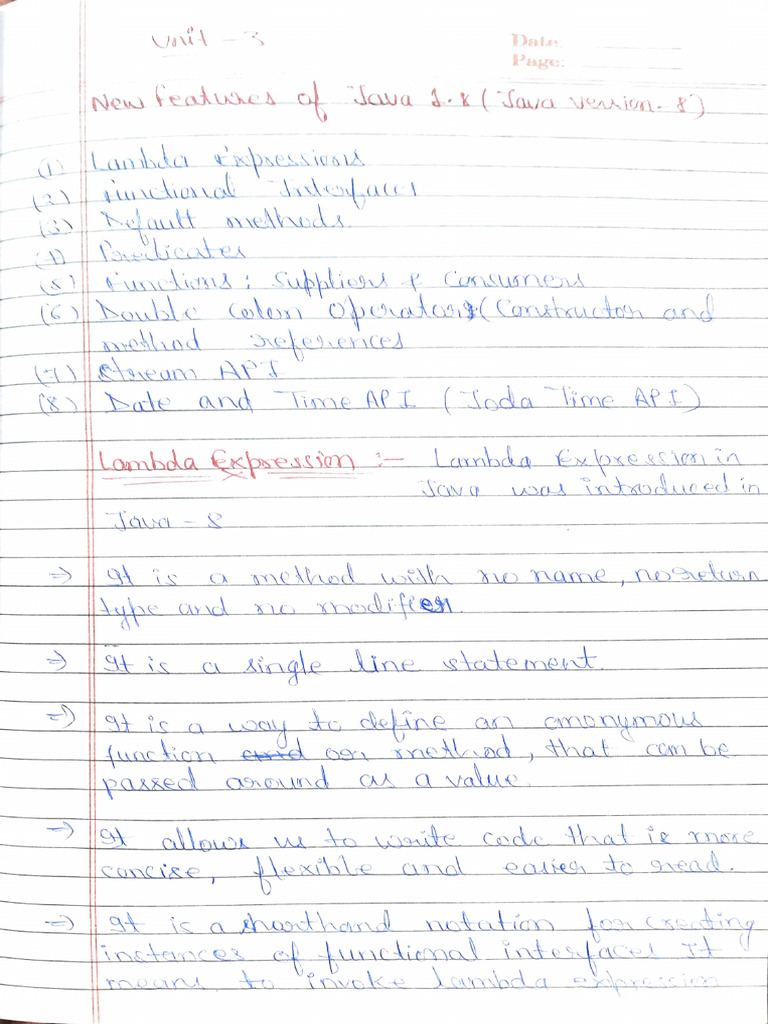 Unit - 3
Date:
Page:
New Features of Java 1.8 (Java version - 8)
(1) Lambda Expressions
(2) Functional Interfaces
(3) Default methods.
(4) Predicates
(5) Functions; Suppliers & Consumers
(6) Double Colon Operators (Constructor and
method references
(7) Stream API
(8) Date and Time API (Joda Time API)
Lambda Expression :- Lambda Expression in
Java was introduced in
Java - 8
⇒ It is a method with no name, no return
type and no modifier.
⇒ It is a single line statement.
⇒ It is a way to define an anonymous
function and or method, that can be
passed around as a value.
⇒ It allows us to write code that is more
concise, flexible and easier to read.
⇒ It is a shorthand notation for creating
instances of functional interfaces It
means to invoke lambda expression